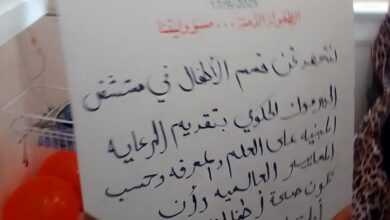 الطفولة الآمنة... مسؤوليتنا
نتعهد نحن قسم الأطفال في مستشفى
اليرموك الحكومي بتقديم الرعاية
المبنية على العلم والمعرفة وحسب
المعايير العالمية وأن
تكون صحة أطفالنا